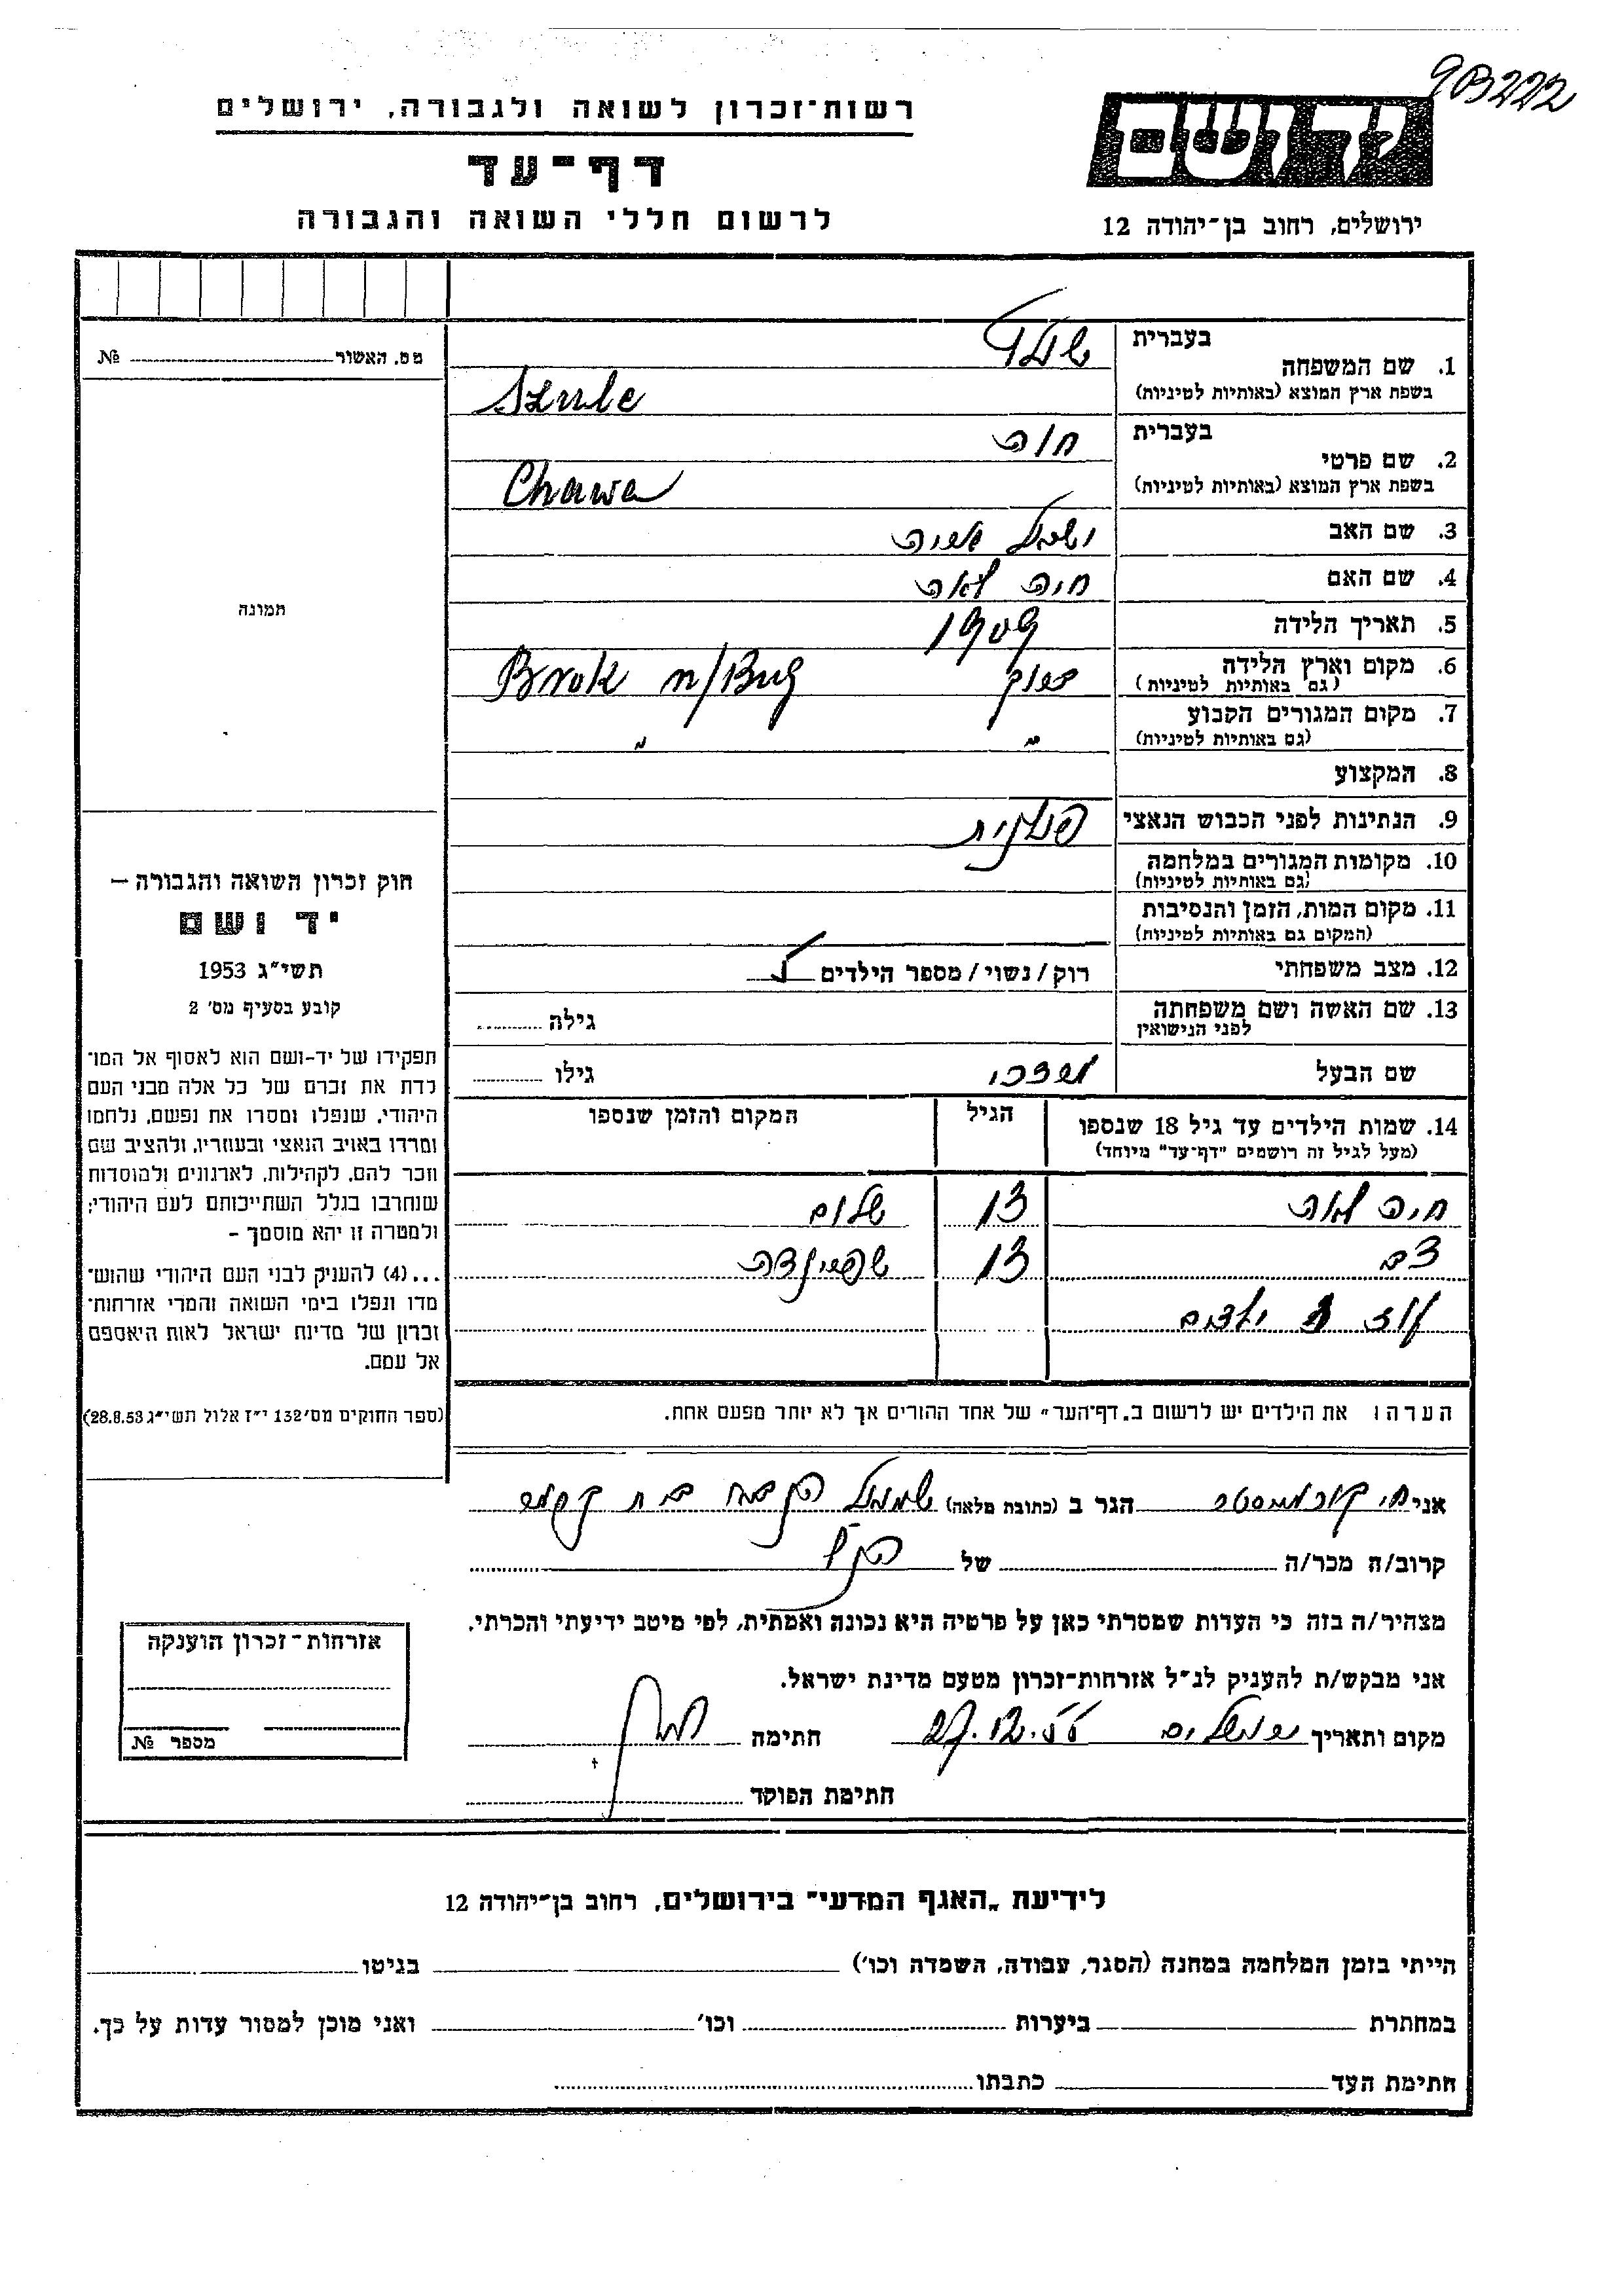 903222
רשות־זכרון לשואה ולגבורה, ירושלים
ידושם
דף־עד
לרשום חללי השואה והגבורה
ירושלים, רחוב בן־יהודה 12
מס. האשור №
בעברית
1. שם המשפחה
בשפת ארץ המוצא (באותיות לטיניות) Szulc
בעברית חוה
2. שם פרטי
בשפת ארץ המוצא (באותיות לטיניות) Chawa
3. שם האב ישראל
4. שם האם חיה לאה
5. תאריך הלידה 1909
6. מקום וארץ הלידה Brok n/Bug
(גם באותיות לטיניות)
7. מקום המגורים הקבוע " "
(גם באותיות לטיניות)
8. המקצוע
9. הנתינות לפני הכבוש הנאצי פולנית
10. מקומות המגורים במלחמה
(גם באותיות לטיניות)
11. מקום המות, הזמן והנסיבות
(המקום גם באותיות לטיניות)
12. מצב משפחתי רוק/נשוי/מספר הילדים
13. שם האשה ושם משפחתה גילה
לפני הנישואין
שם הבעל מרדכי גילו
14. שמות הילדים עד גיל 18 שנספו הגיל המקום והזמן שנספו
(מעל לגיל זה רושמים "דף־עד" מיוחד)
חיה לאה 13 שלום
13
עוד ילדים
הערה: את הילדים יש לרשום ב„דף־העד" של אחד ההורים אך לא יותר מפעם אחת.
תמונה
חוק זכרון השואה והגבורה —
יד ושם
תשי״ג 1953
קובע בסעיף מס׳ 2
תפקידו של יד־ושם הוא לאסוף אל המו־
לדת את זכרם של כל אלה מבני העם
היהודי, שנפלו ומסרו את נפשם, נלחמו
ומרדו באויב הנאצי ובעוזריו, ולהציב שם
וזכר להם, לקהילות, לארגונים ולמוסדות
שנחרבו בגלל השתייכותם לעם היהודי;
ולמטרה זו יהא מוסמך –
...(4) להעניק לבני העם היהודי שהוש־
מדו ונפלו בימי השואה והמרי אזרחות־
זכרון של מדינת ישראל לאות היאספם
אל עמם.
(ספר החוקים מס׳ 132 י״ז אלול תשי״ג 28.8.53)
אני הגר ב (כתובת מלאה) שמואל הנביא
קרוב/ה מכר/ה של הנ״ל
מצהיר/ה בזה כי העדות שמסרתי כאן על פרטיה היא נכונה ואמתית, לפי מיטב ידיעתי והכרתי.
אני מבקש/ת להעניק לנ״ל אזרחות־זכרון מטעם מדינת ישראל.
מקום ותאריך ירושלים 27.12.55 חתימה
חתימת הפוקד
אזרחות־זכרון הוענקה
מספר №
לידיעת „האגף המדעי" בירושלים, רחוב בן־יהודה 12
הייתי בזמן המלחמה במחנה (הסגר, עבודה, השמדה וכו׳) בגיטו
במחתרת ביערות וכו׳ ואני מוכן למסור עדות על כך.
חתימת העד כתבתו